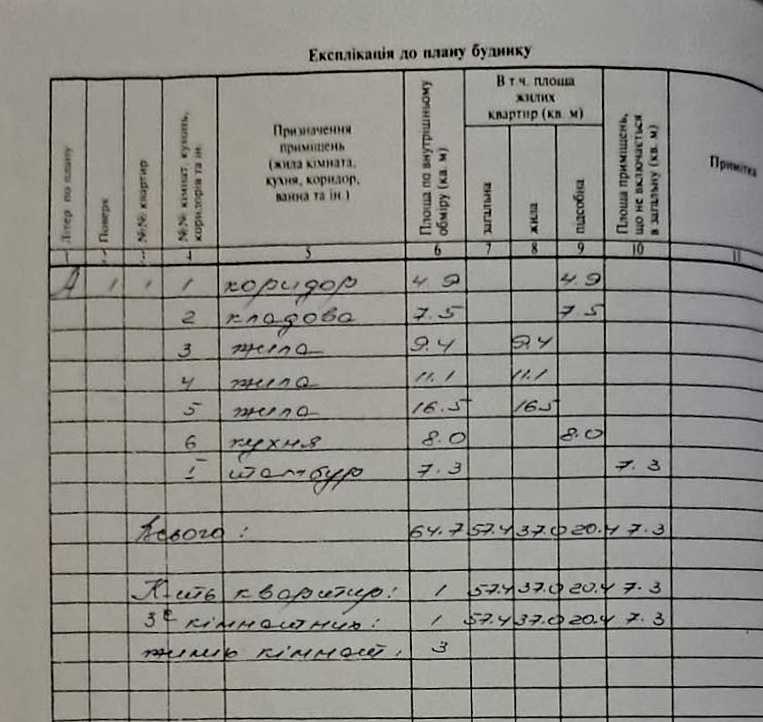 Експлікація до плану будинку
Літер по плану
Поверх
№№ квартир
№№ кімнат, кухонь, коридорів та ін.
Призначення
приміщень
(жила кімната,
кухня, коридор,
ванна та ін.)
Площа по внутрішньому
обміру (кв. м)
В т.ч. площа
жилих
квартир (кв. м)
загальна
жила
підсобна
Площа приміщень,
що не включається
в загальну (кв. м)
Примітка
1 2 3 4 5 6 7 8 9 10 11
А 1 1 1 коридор 4.9 4.9
2 кладова 7.5 7.5
3 жила 9.4 9.4
4 жила 11.1 11.1
5 жила 16.5 16.5
6 кухня 8.0 8.0
I тамбур 7.3 7.3
Всього: 64.7 57.4 37.0 20.4 7.3
К-ть квартир: 1 57.4 37.0 20.4 7.3
3х кімнатних: 1 57.4 37.0 20.4 7.3
жилих кімнат: 3